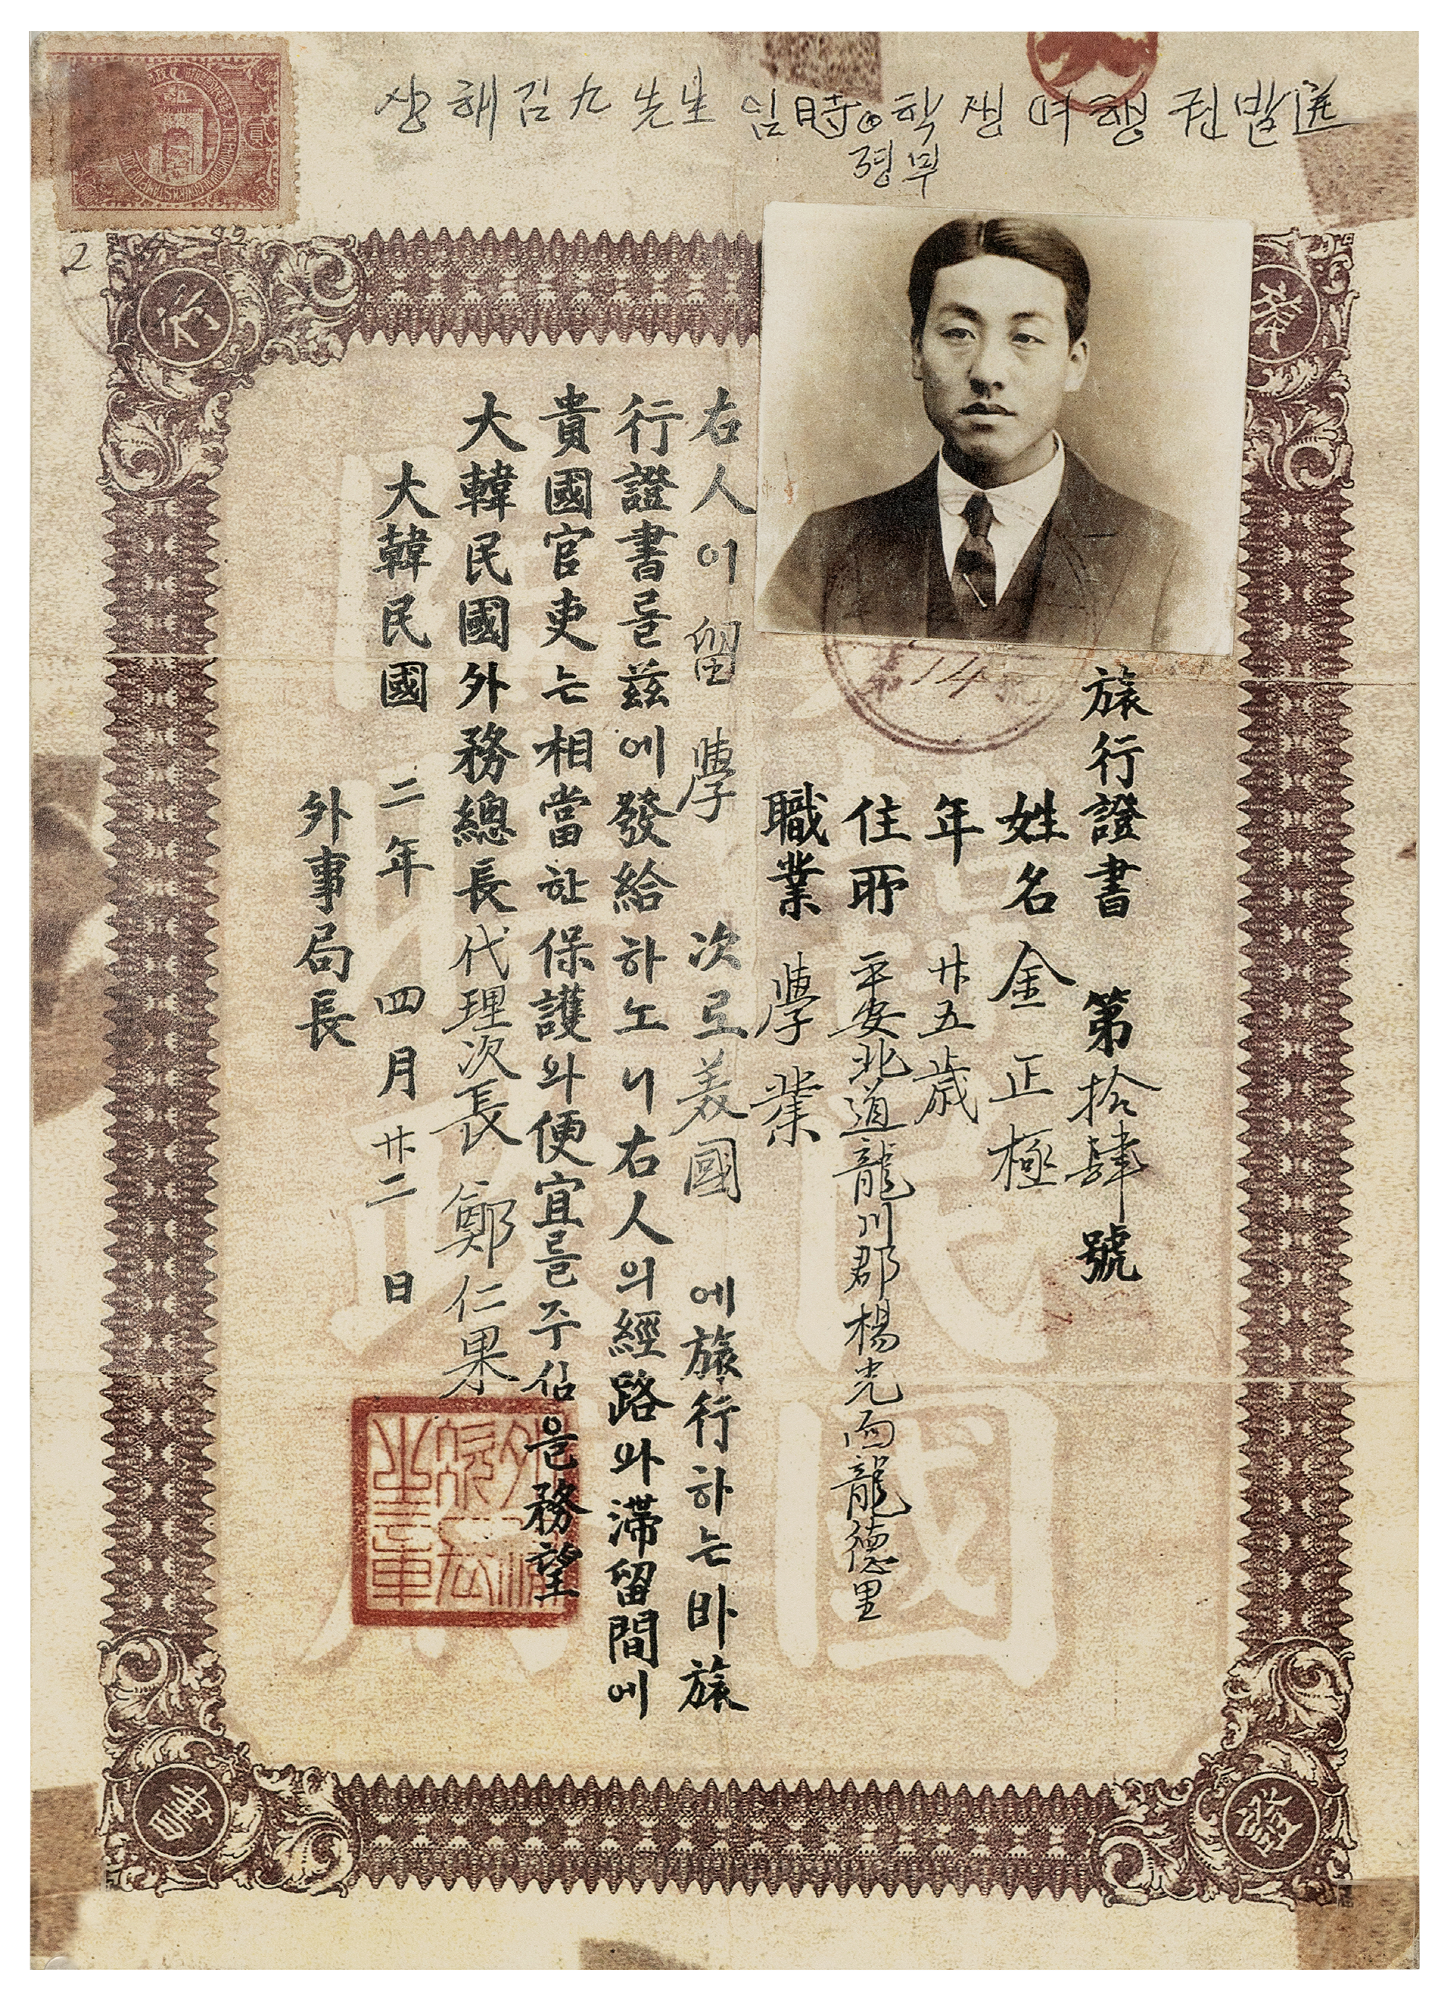 상해김九先生 임時정학생여행권발送
령부
旅行證書 第拾肆號
姓名 金正極
年 廿五歲
住所 平安北道龍川郡楊光面龍德里
職業 學業
右人이 留學 次로 美國 에旅行하는바旅
行證書를玆에發給하노니右人의經路와滯留間에
貴國官吏는相當한保護와便宜를주심을務望
大韓民國外務總長代理次長 鄭仁果
大韓民國 二年 四月 廿二日
外事局長
第14號
大韓民國
臨時政府
旅
行
證
書